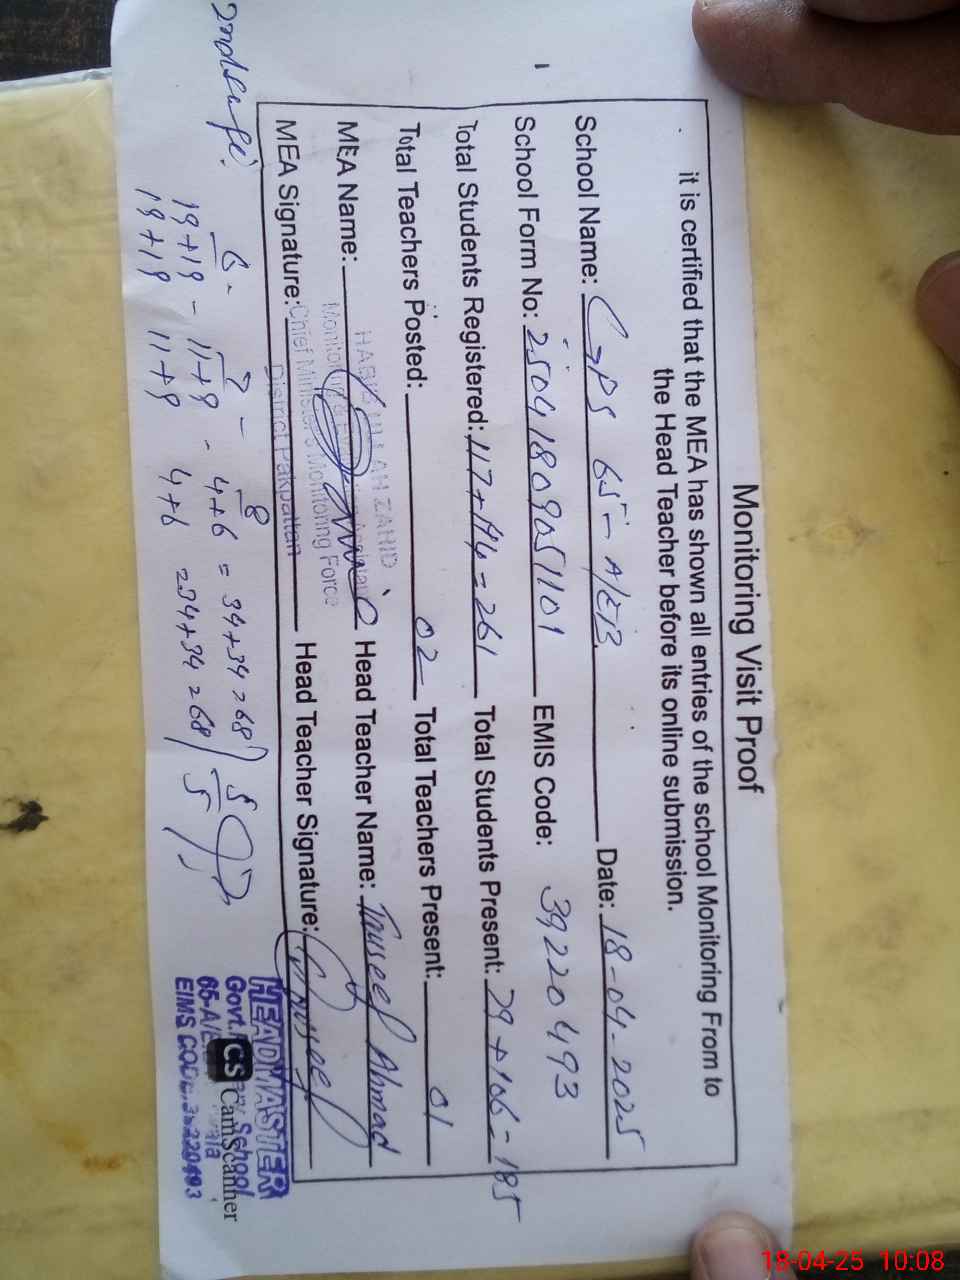 Monitoring Visit Proof
it is certified that the MEA has shown all entries of the school Monitoring From to
the Head Teacher before its online submission.
School Name: GPS 65- A/EB. Date: 18-04-2025
School Form No: 25041809051101 EMIS Code: 39220493
Total Students Registered: 117+144=261 Total Students Present: 79+106=185
Total Teachers Posted: 02 Total Teachers Present: 01
MEA Name: Head Teacher Name: Tauseef Ahmad
MEA Signature: Head Teacher Signature: Tauseef
HABIB ULLAH ZAHID
Monitoring &
Chief Minister's Monitoring Force
District Pakpattan
6 - 7 - 8
19+19 - 11+9 - 4+6 = 34+34=68
19+19 11+9 4+6 =34+34=68
HEADMASTER
Govt. School
65-A/E
EIMS CODE: 39220493
CS CamScanner
18-04-25 10:08